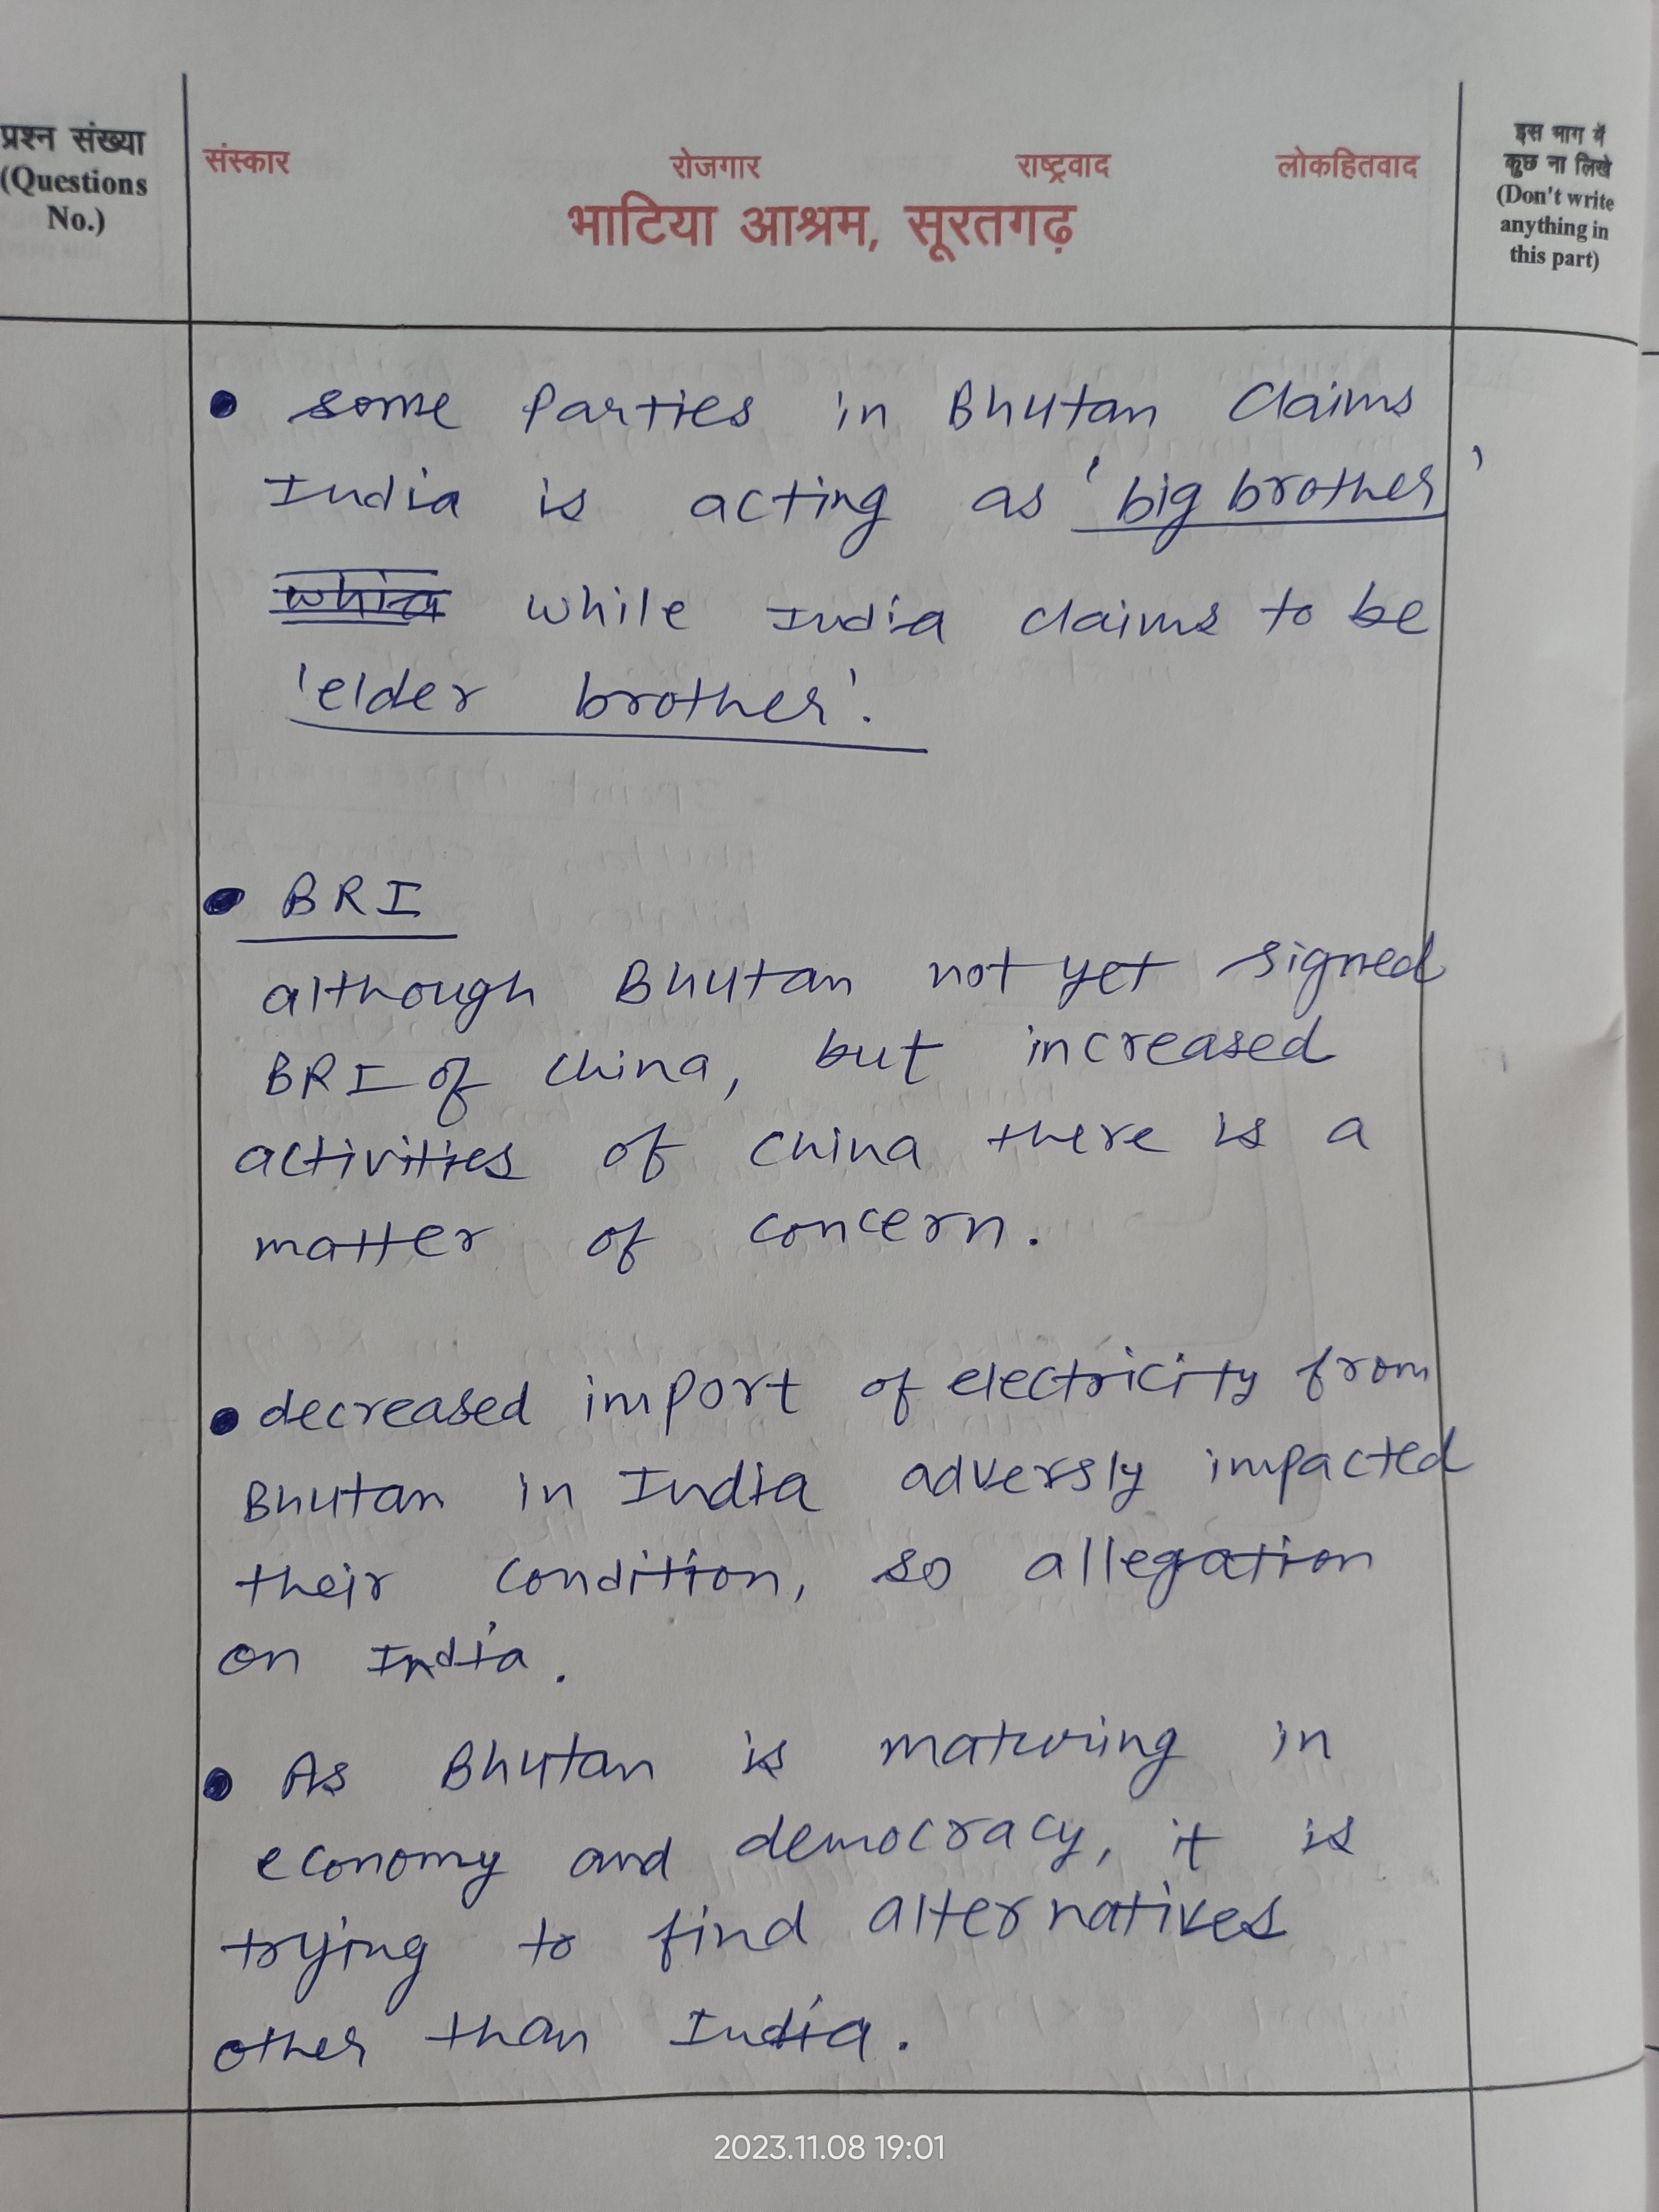 प्रश्न संख्या
(Questions
No.)
संस्कार रोजगार राष्ट्रवाद लोकहितवाद
भाटिया आश्रम, सूरतगढ़
इस भाग में
कुछ ना लिखे
(Don't write
anything in
this part)
• some parties in Bhutan claims
India is acting as 'big brother'
while India claims to be
'elder brother'.
• BRI
although Bhutan not yet signed
BRI of China, but increased
activities of China there is a
matter of concern.
• decreased import of electricity from
Bhutan in India adversly impacted
their condition, so allegation
on India.
• As Bhutan is maturing in
economy and democracy, it is
trying to find alternatives
other than India.
2023.11.08 19:01